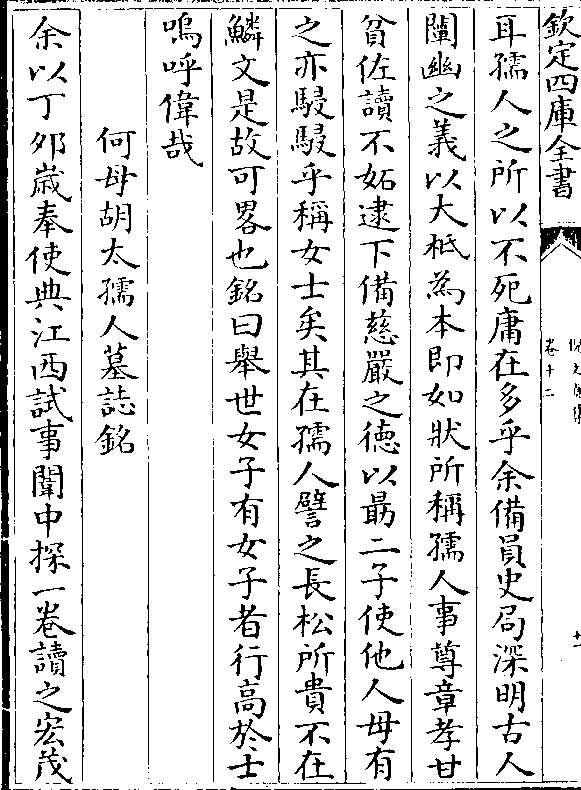 欽定四庫全書
卷十二
十一
耳孺人之所以不死庸在多乎余備員史局深明古人
闡幽之義以大柢為本即如狀所稱孺人事尊章孝甘
貧佐讀不妬逮下備慈嚴之徳以勗二子使他人母有
之亦駸駸乎稱女士矣其在孺人譬之長松所貴不在
鱗文是故可畧也銘曰舉世女子有女子者行高於士
嗚呼偉哉
何母胡太孺人墓誌銘
余以丁夘歳奉使典江西試事闈中探一卷讀之宏茂